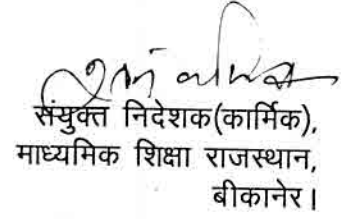 संयुक्त निदेशक(कार्मिक),
माध्यमिक शिक्षा राजस्थान,
बीकानेर।